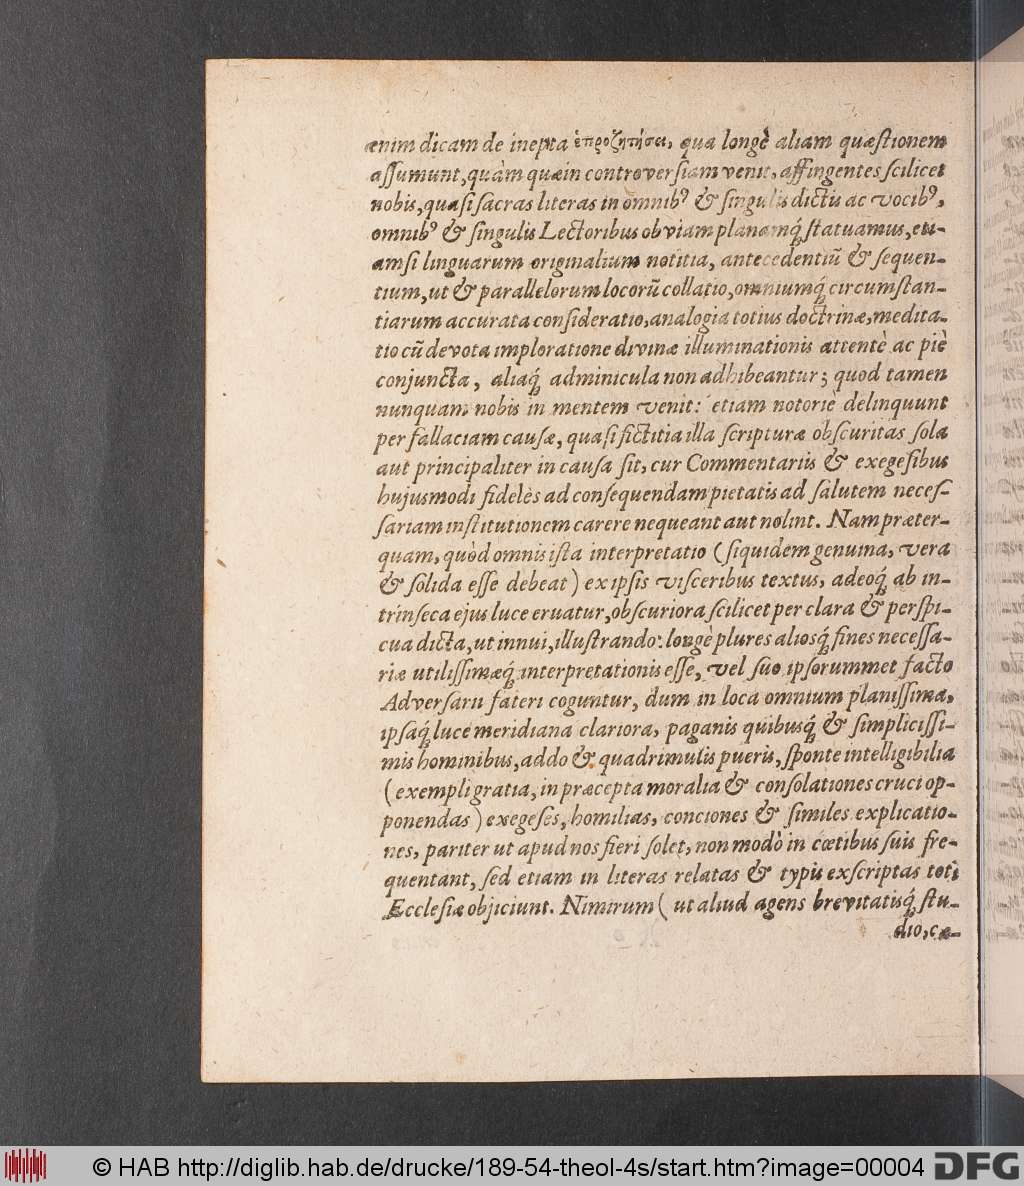 ænim dicam de inepta ἑπροζητήσει, qua longè aliam quæstionem
assumunt, quàm quæ in controversiam venit, affingentes scilicet
nobis, quasi sacras literas in omnibꝰ & singulis dictis ac vocibꝰ,
omnibꝰ & singulis Lectoribus obviam planamq́ statuamus, eti-
amsi linguarum originalium notitia, antecedentiũ & sequen-
tium, ut & parallelorum locorũ collatio, omniumq́ circumstan-
tiarum accurata consideratio, analogia totius doctrinæ, medita-
tio cũ devota imploratione divinæ illuminationis attentè ac piè
conjuncta, aliaq́ adminicula non adhibeantur; quod tamen
nunquam nobis in mentem venit: etiam notoriè delinquunt
per fallaciam causæ, quasi fictitia illa scripturæ obscuritas sola
aut principaliter in causa sit, cur Commentariis & exegesibus
hujusmodi fidelès ad consequendam pietatis ad salutem neces-
sariam institutionem carere nequeant aut nolint. Nam præter-
quam, quòd omnis ista interpretatio (siquidem genuina, vera
& solida esse debeat) ex ipsis visceribus textus, adeoq́ ab in-
trinseca ejus luce eruatur, obscuriora scilicet per clara & perspi-
cua dicta, ut innui, illustrando: longè plures aliosq́ fines necessa-
riæ utilissimæq́ interpretationis esse, vel suo ipsorummet facto
Adversarii fateri coguntur, dum in loca omnium planissima,
ipsaq́ luce meridiana clariora, paganis quibusq́ & simplicissi-
mis hominibus, addo & quadrimulis pueris, sponte intelligibilia
(exempli gratia, in præcepta moralia & consolationes cruci op-
ponendas) exegeses, homilias, conciones & similes explicatio-
nes, pariter ut apud nos fieri solet, non modò in cœtibus suis fre-
quentant, sed etiam in literas relatas & typis exscriptas toti
Ecclesiæ objiciunt. Nimirum (ut aliud agens brevitatisq́ stu-
dio, cæ-
© HAB http://diglib.hab.de/drucke/189-54-theol-4s/start.htm?image=00004 DFG